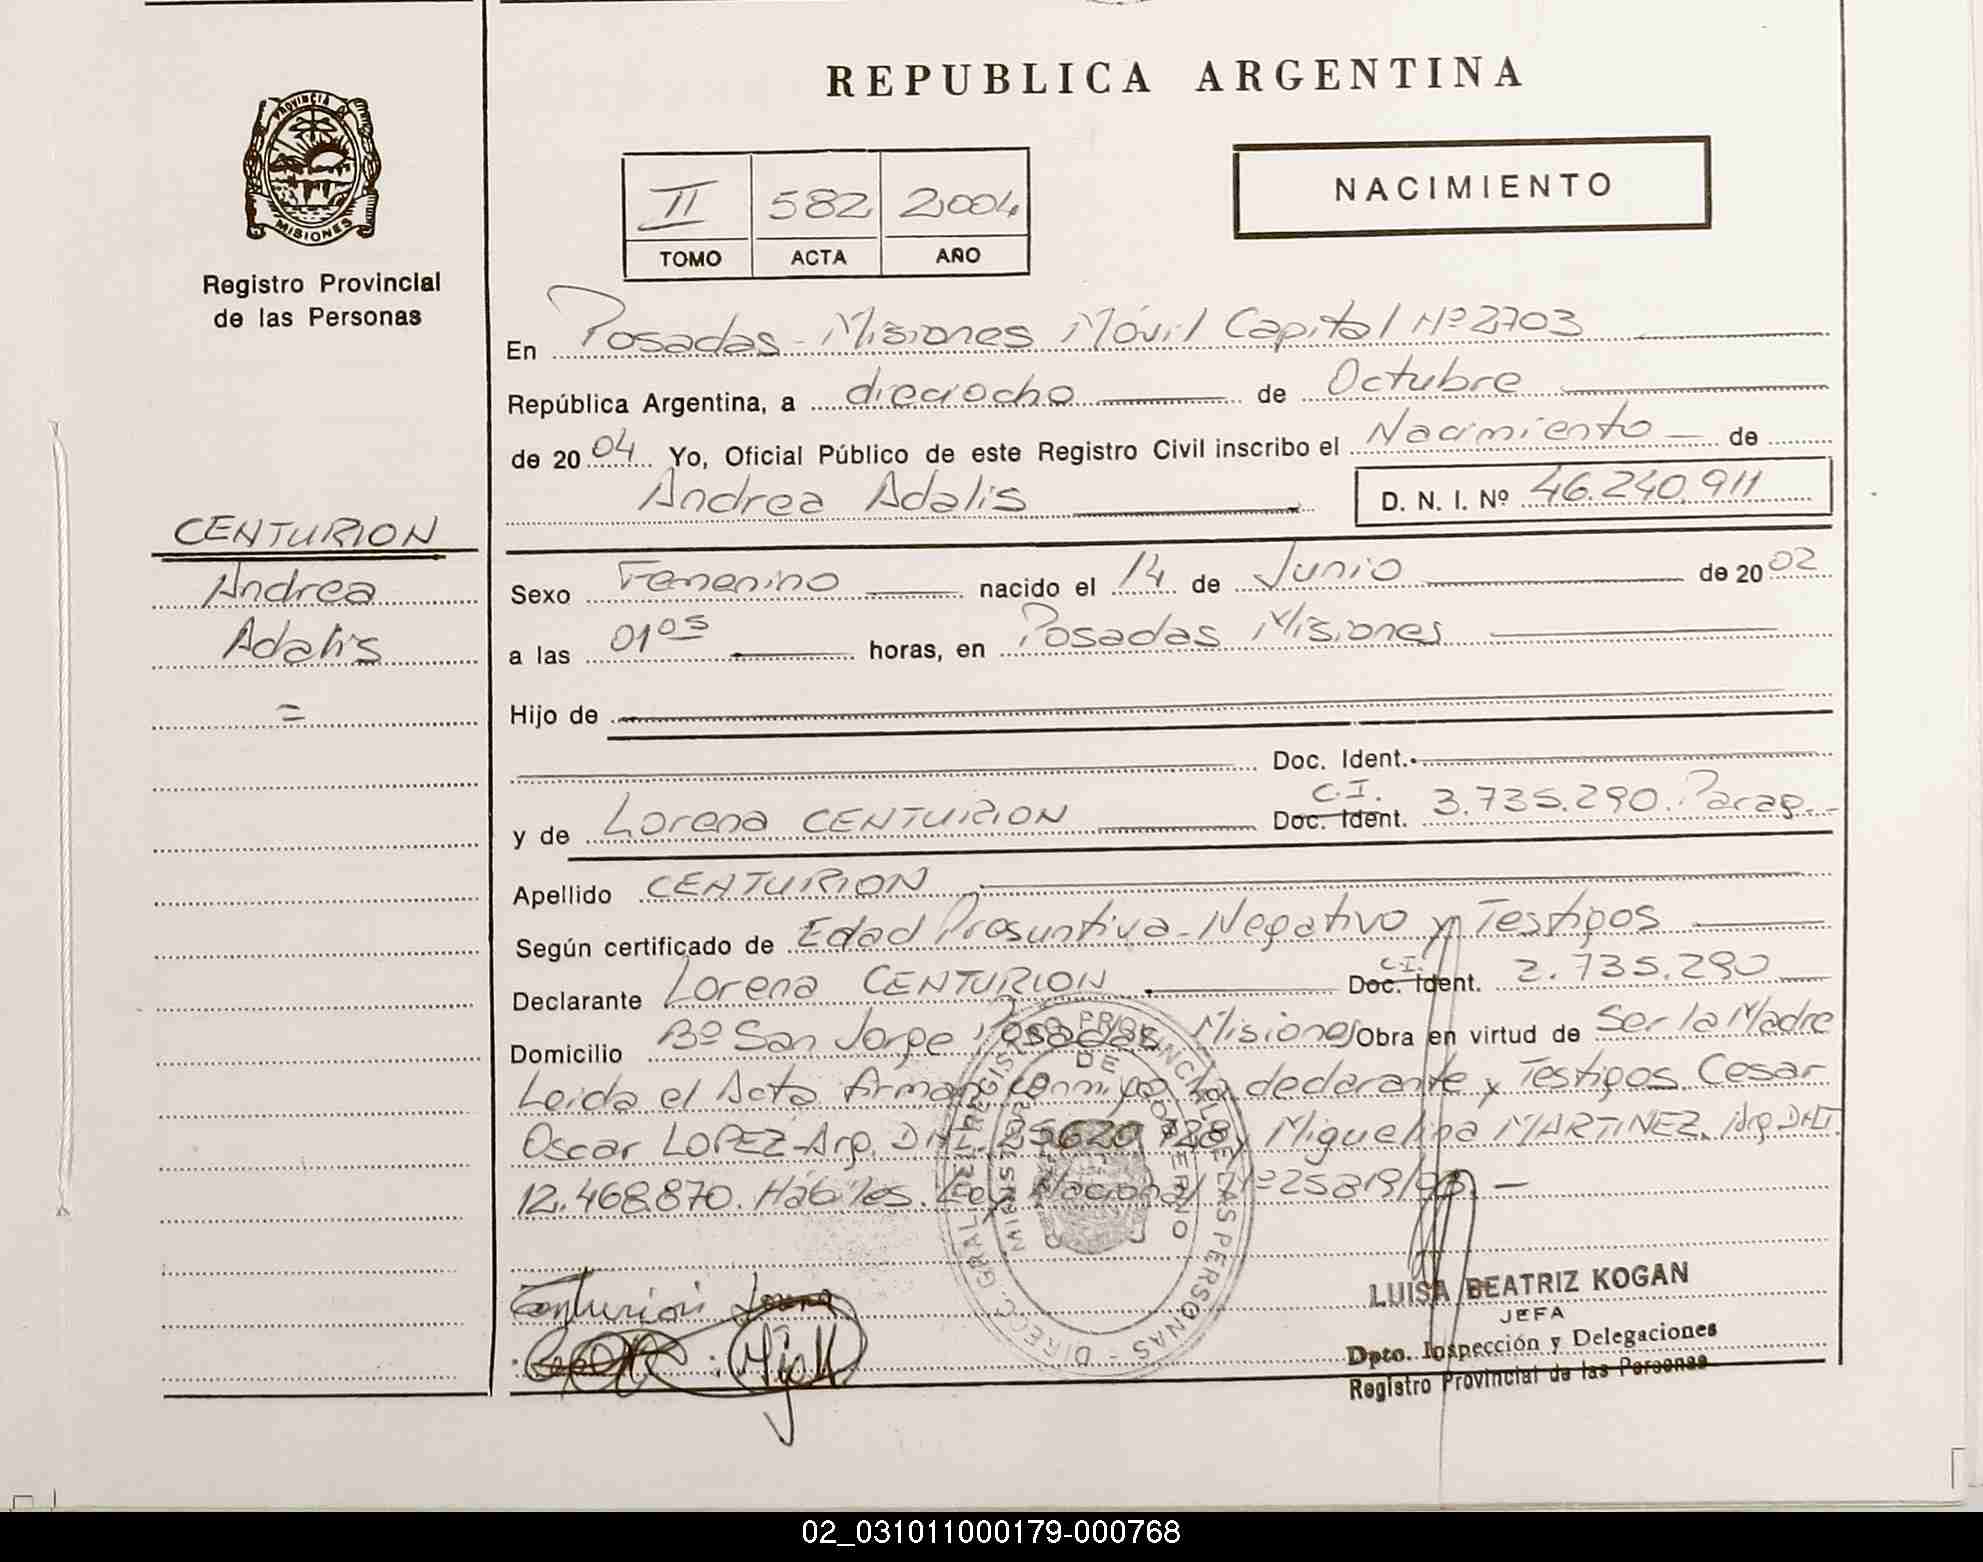 REPUBLICA ARGENTINA
PROVINCIA DE
MISIONES
Registro Provincial
de las Personas
II 582 2004
TOMO ACTA AÑO
NACIMIENTO
En Posadas - Misiones Móvil Capital Nº 2703
República Argentina, a dieciocho de Octubre
de 2004 Yo, Oficial Público de este Registro Civil inscribo el Nacimiento de
Andrea Adalis D. N. I. Nº 46.240.911
CENTURION
Andrea
Adalis
=
Sexo Femenino nacido el 14 de Junio de 2002
a las 01 05 horas, en Posadas Misiones
Hijo de
Doc. Ident.
C.I.
y de Lorena CENTURION Doc. Ident. 3.735.290. Parag.
Apellido CENTURION
Según certificado de Edad Presuntiva - Negativo y Testigos
C.I.
Declarante Lorena CENTURION Doc. Ident. 2.735.290
Domicilio Bº San Jorge Posadas Misiones Obra en virtud de Ser la Madre
Leida el Acta Firman conmigo la declarante y Testigos Cesar
Oscar LOPEZ - Arg. DNI. 25620728 y Miguelina MARTINEZ. Arg. DNI.
12.468.870. Hábiles. Ley Nacional Nº 25819/03. -
DIREC. GRAL. DEL REGISTRO PROVINCIAL DE LAS PERSONAS
MINISTERIO DE GOBIERNO
Centurion Lorena
LUISA BEATRIZ KOGAN
JEFA
Dpto. Inspección y Delegaciones
Registro Provincial de las Personas
02_031011000179-000768